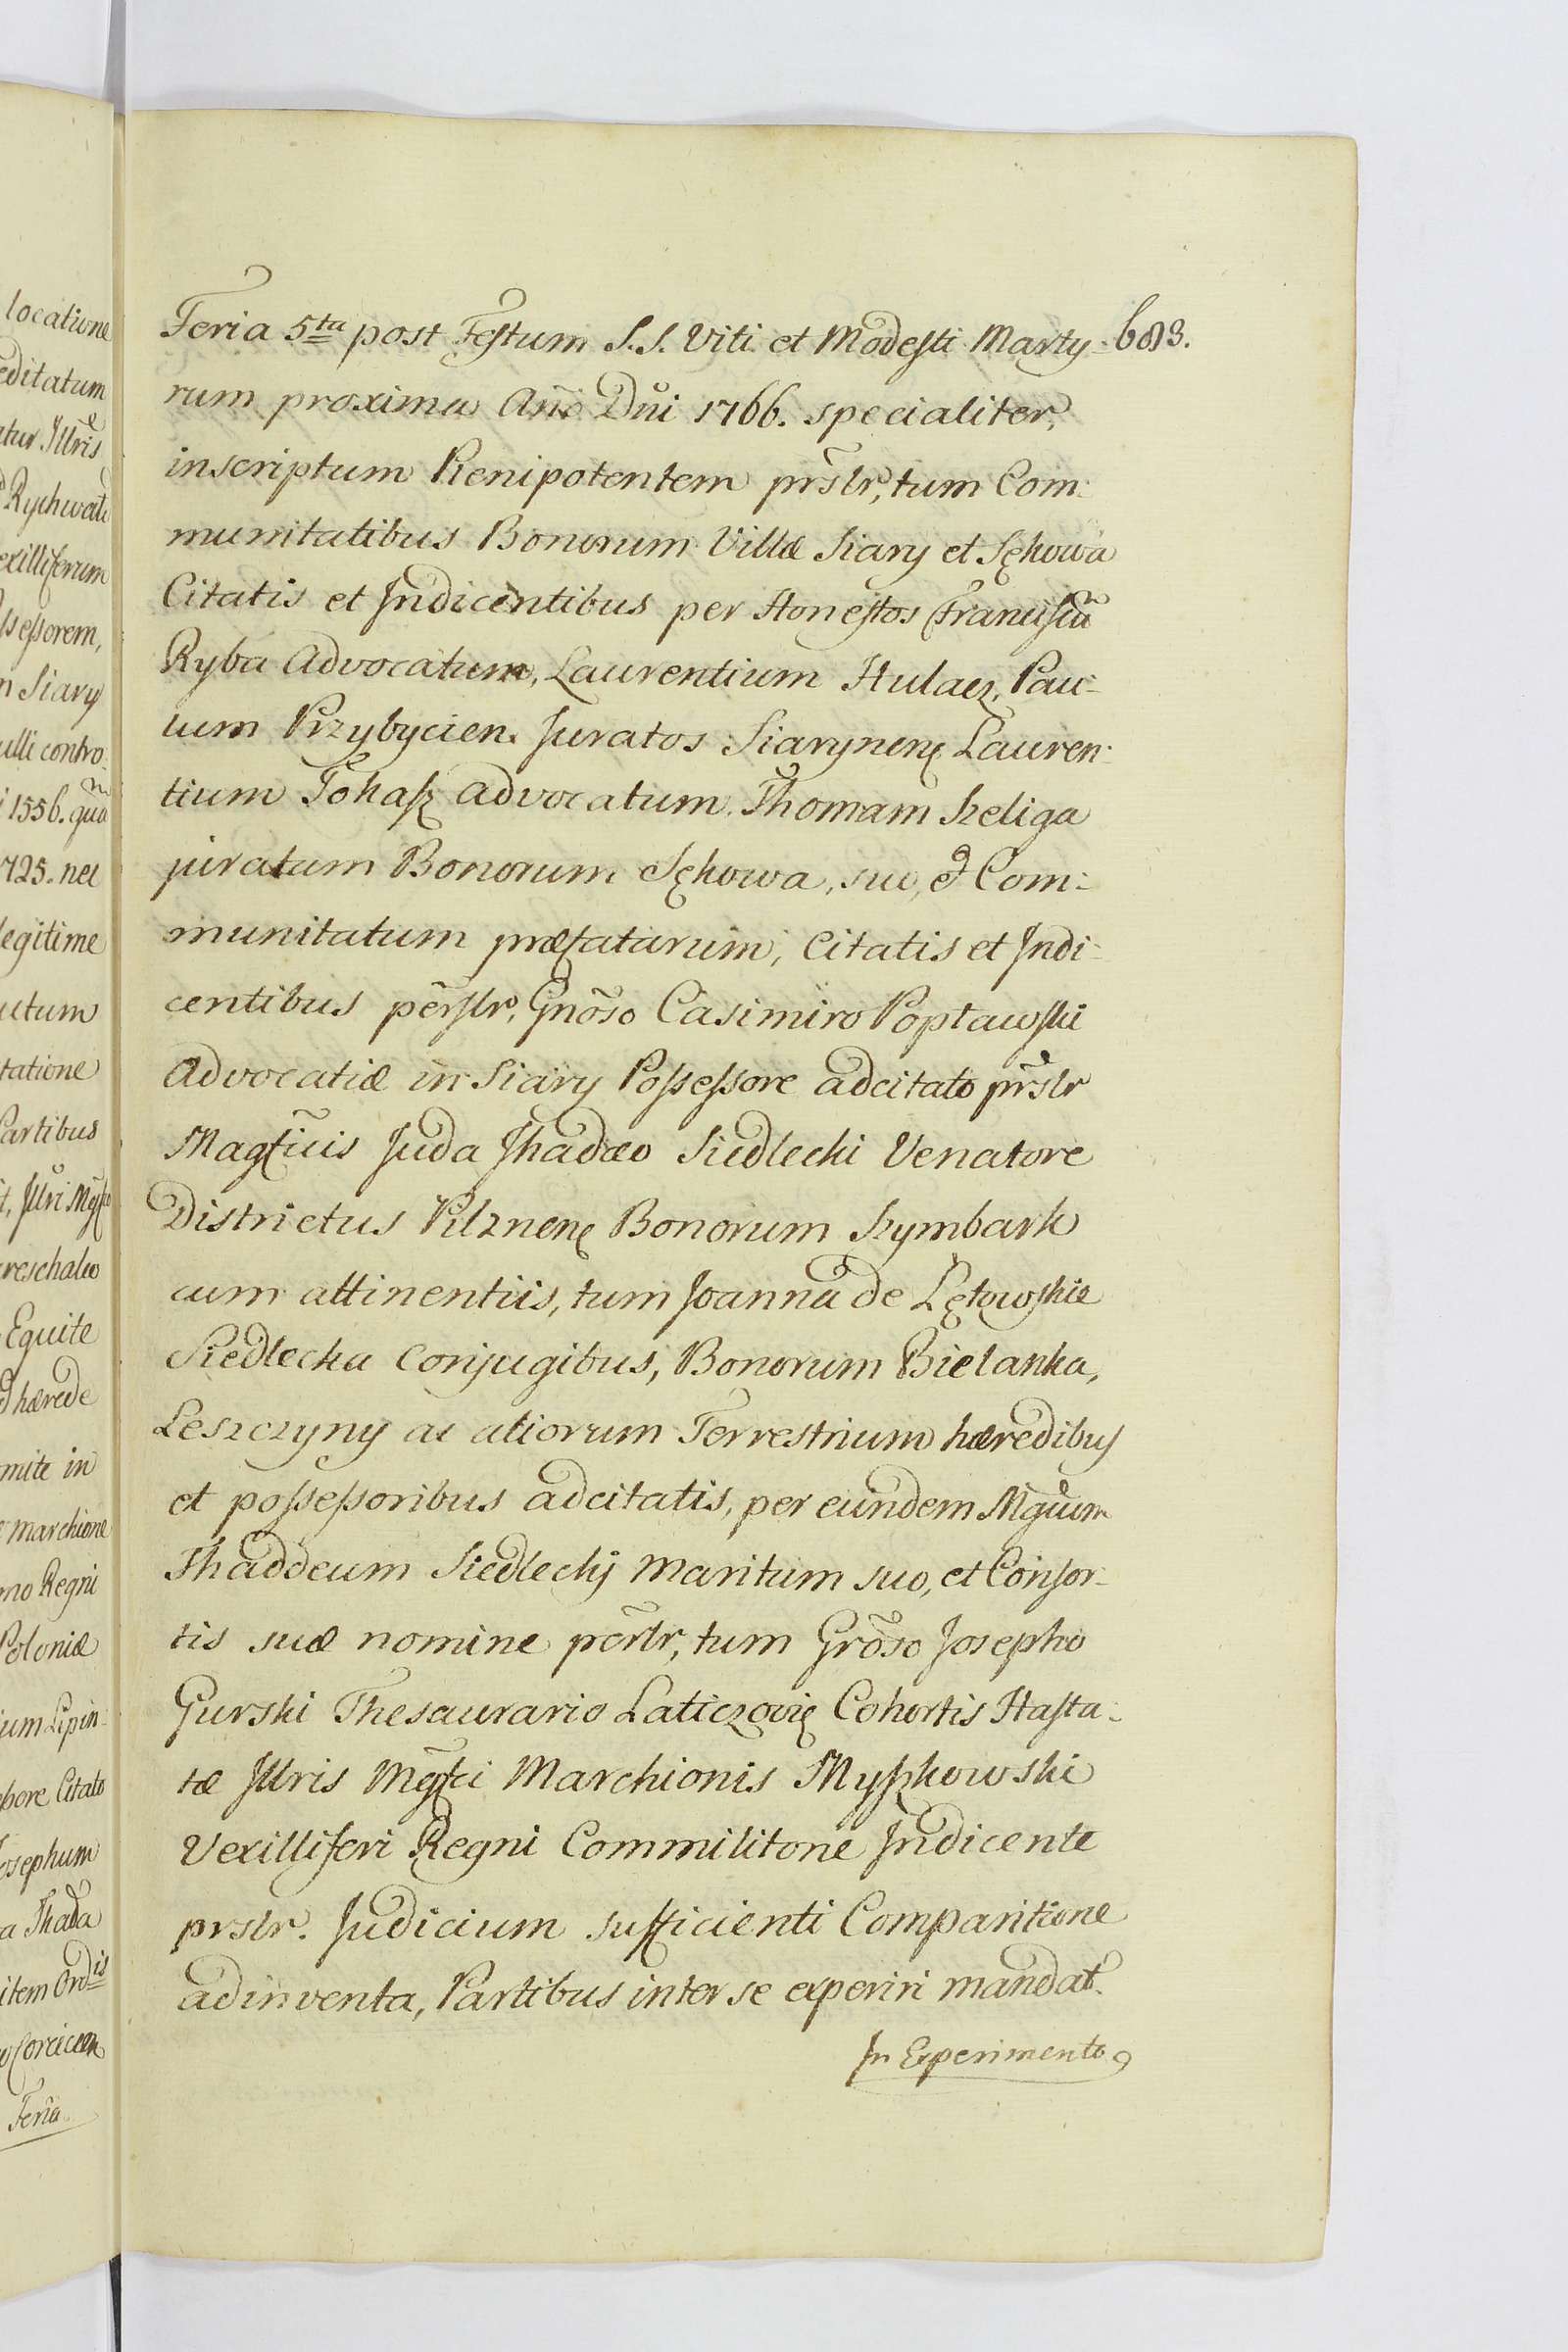 locatione
editatum
atur Illris
Rychwałd
exilliferum
ssessorem,
n Siary
ulli contro-
i 1556. qua
1725. nec
legitime
tatione
Partibus
t, Illri Mgfco
areschalco
Equite
hærede
mite in
Marchione
Regni
Poloniæ
ium Lipin-
Citato
osephum
a Thada
item Ordis
Feria
Feria 5ta post Festum S.S. Viti et Modesti Marty- 603.
rum proxima Año Dñi 1766. specialiter,
inscriptum Plenipotentem prslr, tum Com-
munitatibus Bonorum Villæ Siary et Sękowa
Citatis et Indicentibus per Honestos Franciscũ
Ryba Advocatum, Laurentium Hulacz, Pau-
lum Przybycien. Juratos Siarynenę Lauren-
tium Tokasz Advocatum Thomam Szeliga
juratum Bonorum Sękowa, suo, et Com-
munitatum præfatarum, Citatis et Indi-
centibus perslr, Gnõso Casimiro Popławski
Advocatiæ in Siary Possessore adcitato prslr
Magfcis Juda Thadæo Siedlecki Venatore
Districtus Pilznenę Bonorum Szymbark
cum attinentiis, tum Joanna de Lętowskie
Siedlecka Conjugibus, Bonorum Bielanka,
Leszczyny ac aliorum Terrestrium hæredibus
et possessoribus adcitatis, per eundem Mgcum
Thaddeum Siedlecki Maritum suo, et Consor-
tis suæ nomine perslr, tum Grõso Josepho
Gurski Thesaurario Laticzovię Cohortis Hasta-
tæ Illris Mgfci Marchionis Myszkowski
Vexilliferi Regni Commilitone Indicente
prslr. Judicium sufficienti Comparitione
adinventa, Partibus inter se experiri mandat.
In Experimento